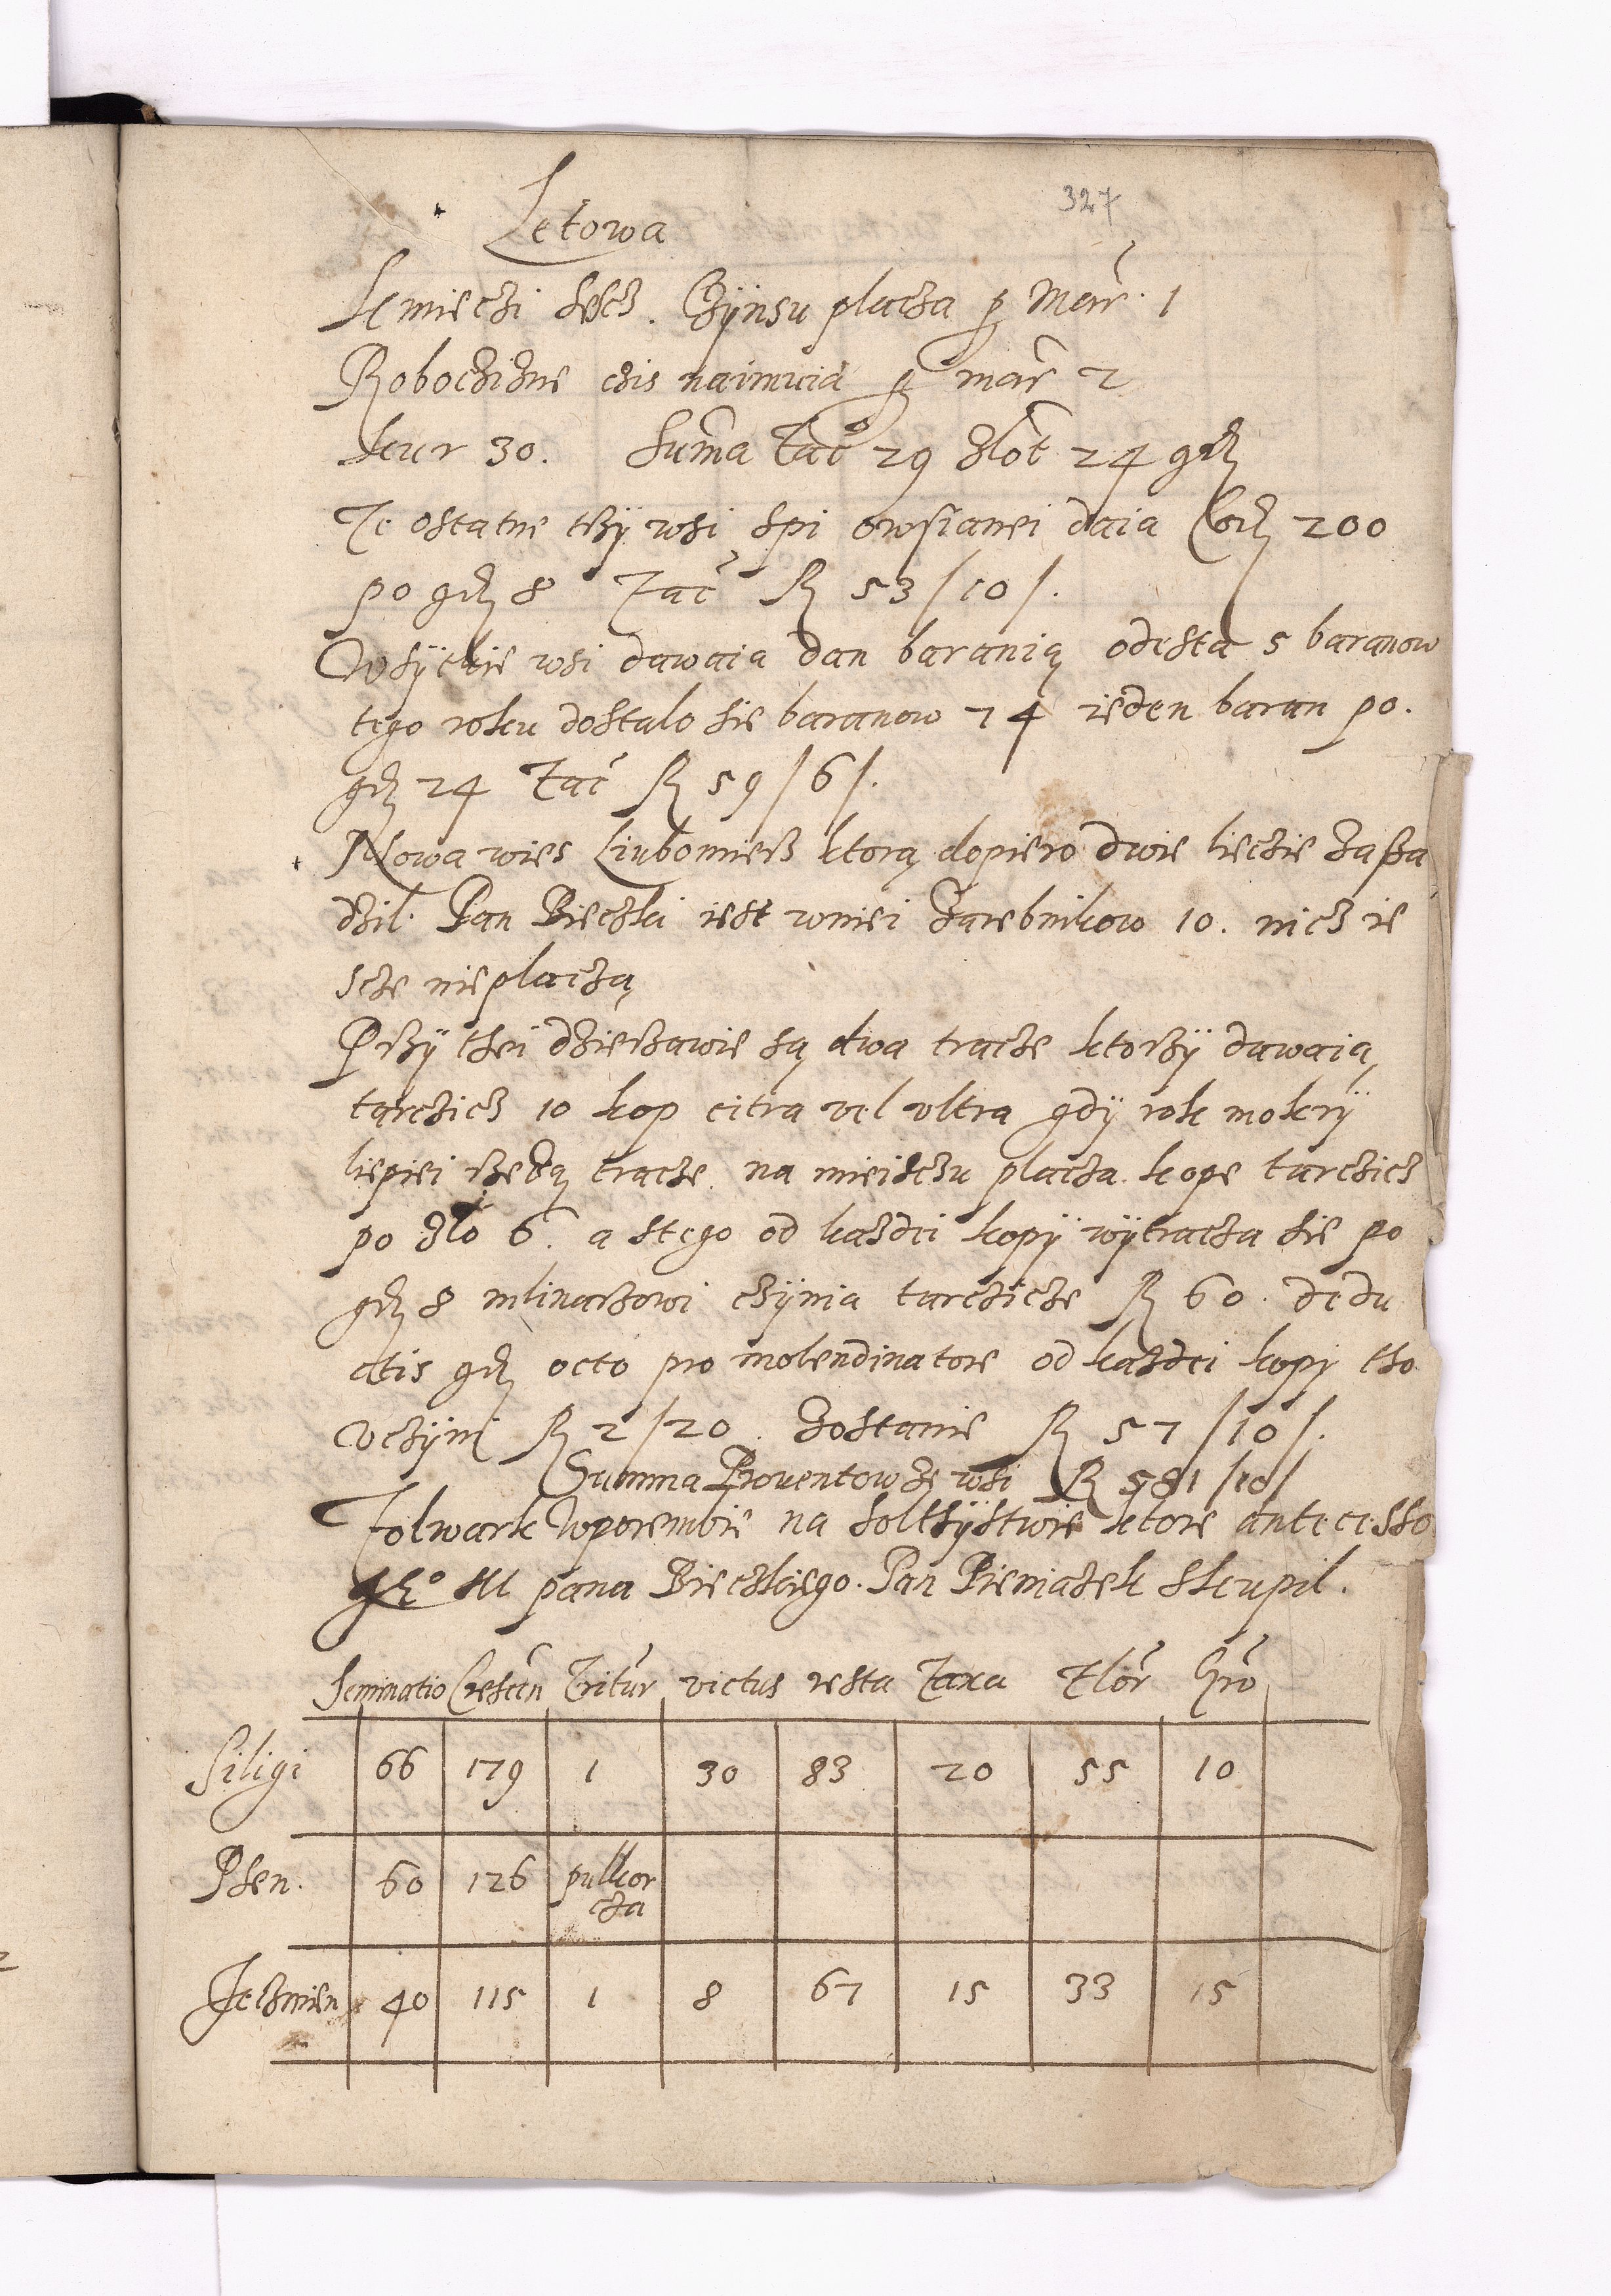 327
Letowa
Kmiechi sesch. Czÿnsu placza p Mar. 1
Robochizne czis naimuia p mar 2
kur 30. Suma Fac 29 zlot 24 gr
Te ostatne trzÿ wsi Spi owsianei daia Cor 200
po gr 8 Fac fl 53 / 10 /.
Wsÿtkie wsi dawaia dan baranią odesta 5 baranow
tego roku dostalo sie baranow 74 ieden baran po.
gr 24 Fac fl 59 / 6 /.
Nowa wies Liubomierz ktorą dopiero dwie liecie zassa
dzil. Pan Bieczki iest wniei zarebnikow 10. nicz ie
scze nieplaczą
Przÿ thei dzierzawie są dwa tracze ktorzÿ dawaią
tarczicz 10 kop citra vel vltra gdÿ rok mokrÿ
liepiei rzezą tracze. na mieisczu placza. kope tarczicz
po zlo 6. a stego od kazdei kopÿ wÿtracza sie po
gr 8 mlinarzowi czÿnia tarczicze fl 60. dedu
ctis gr octo pro molendinatore od kazdei kopÿ tho
vczÿni fl 2 / 20. zostanie fl 57 / 10 /.
Summa Prouentow ze wsi fl 581 / 10 /
Folwark Wporembie na soltsÿstwie ktore antecesso
Je° M pana Bieczkiego. Pan Pieniazek skupil.
Seminatio Crescen Tritur victus resta Taxa Flor Gro
Siligi 66 179 1 30 83 20 55 10
Psen. 60 126 pulkor
cza
Jeczmien 40 115 1 8 67 15 33 15